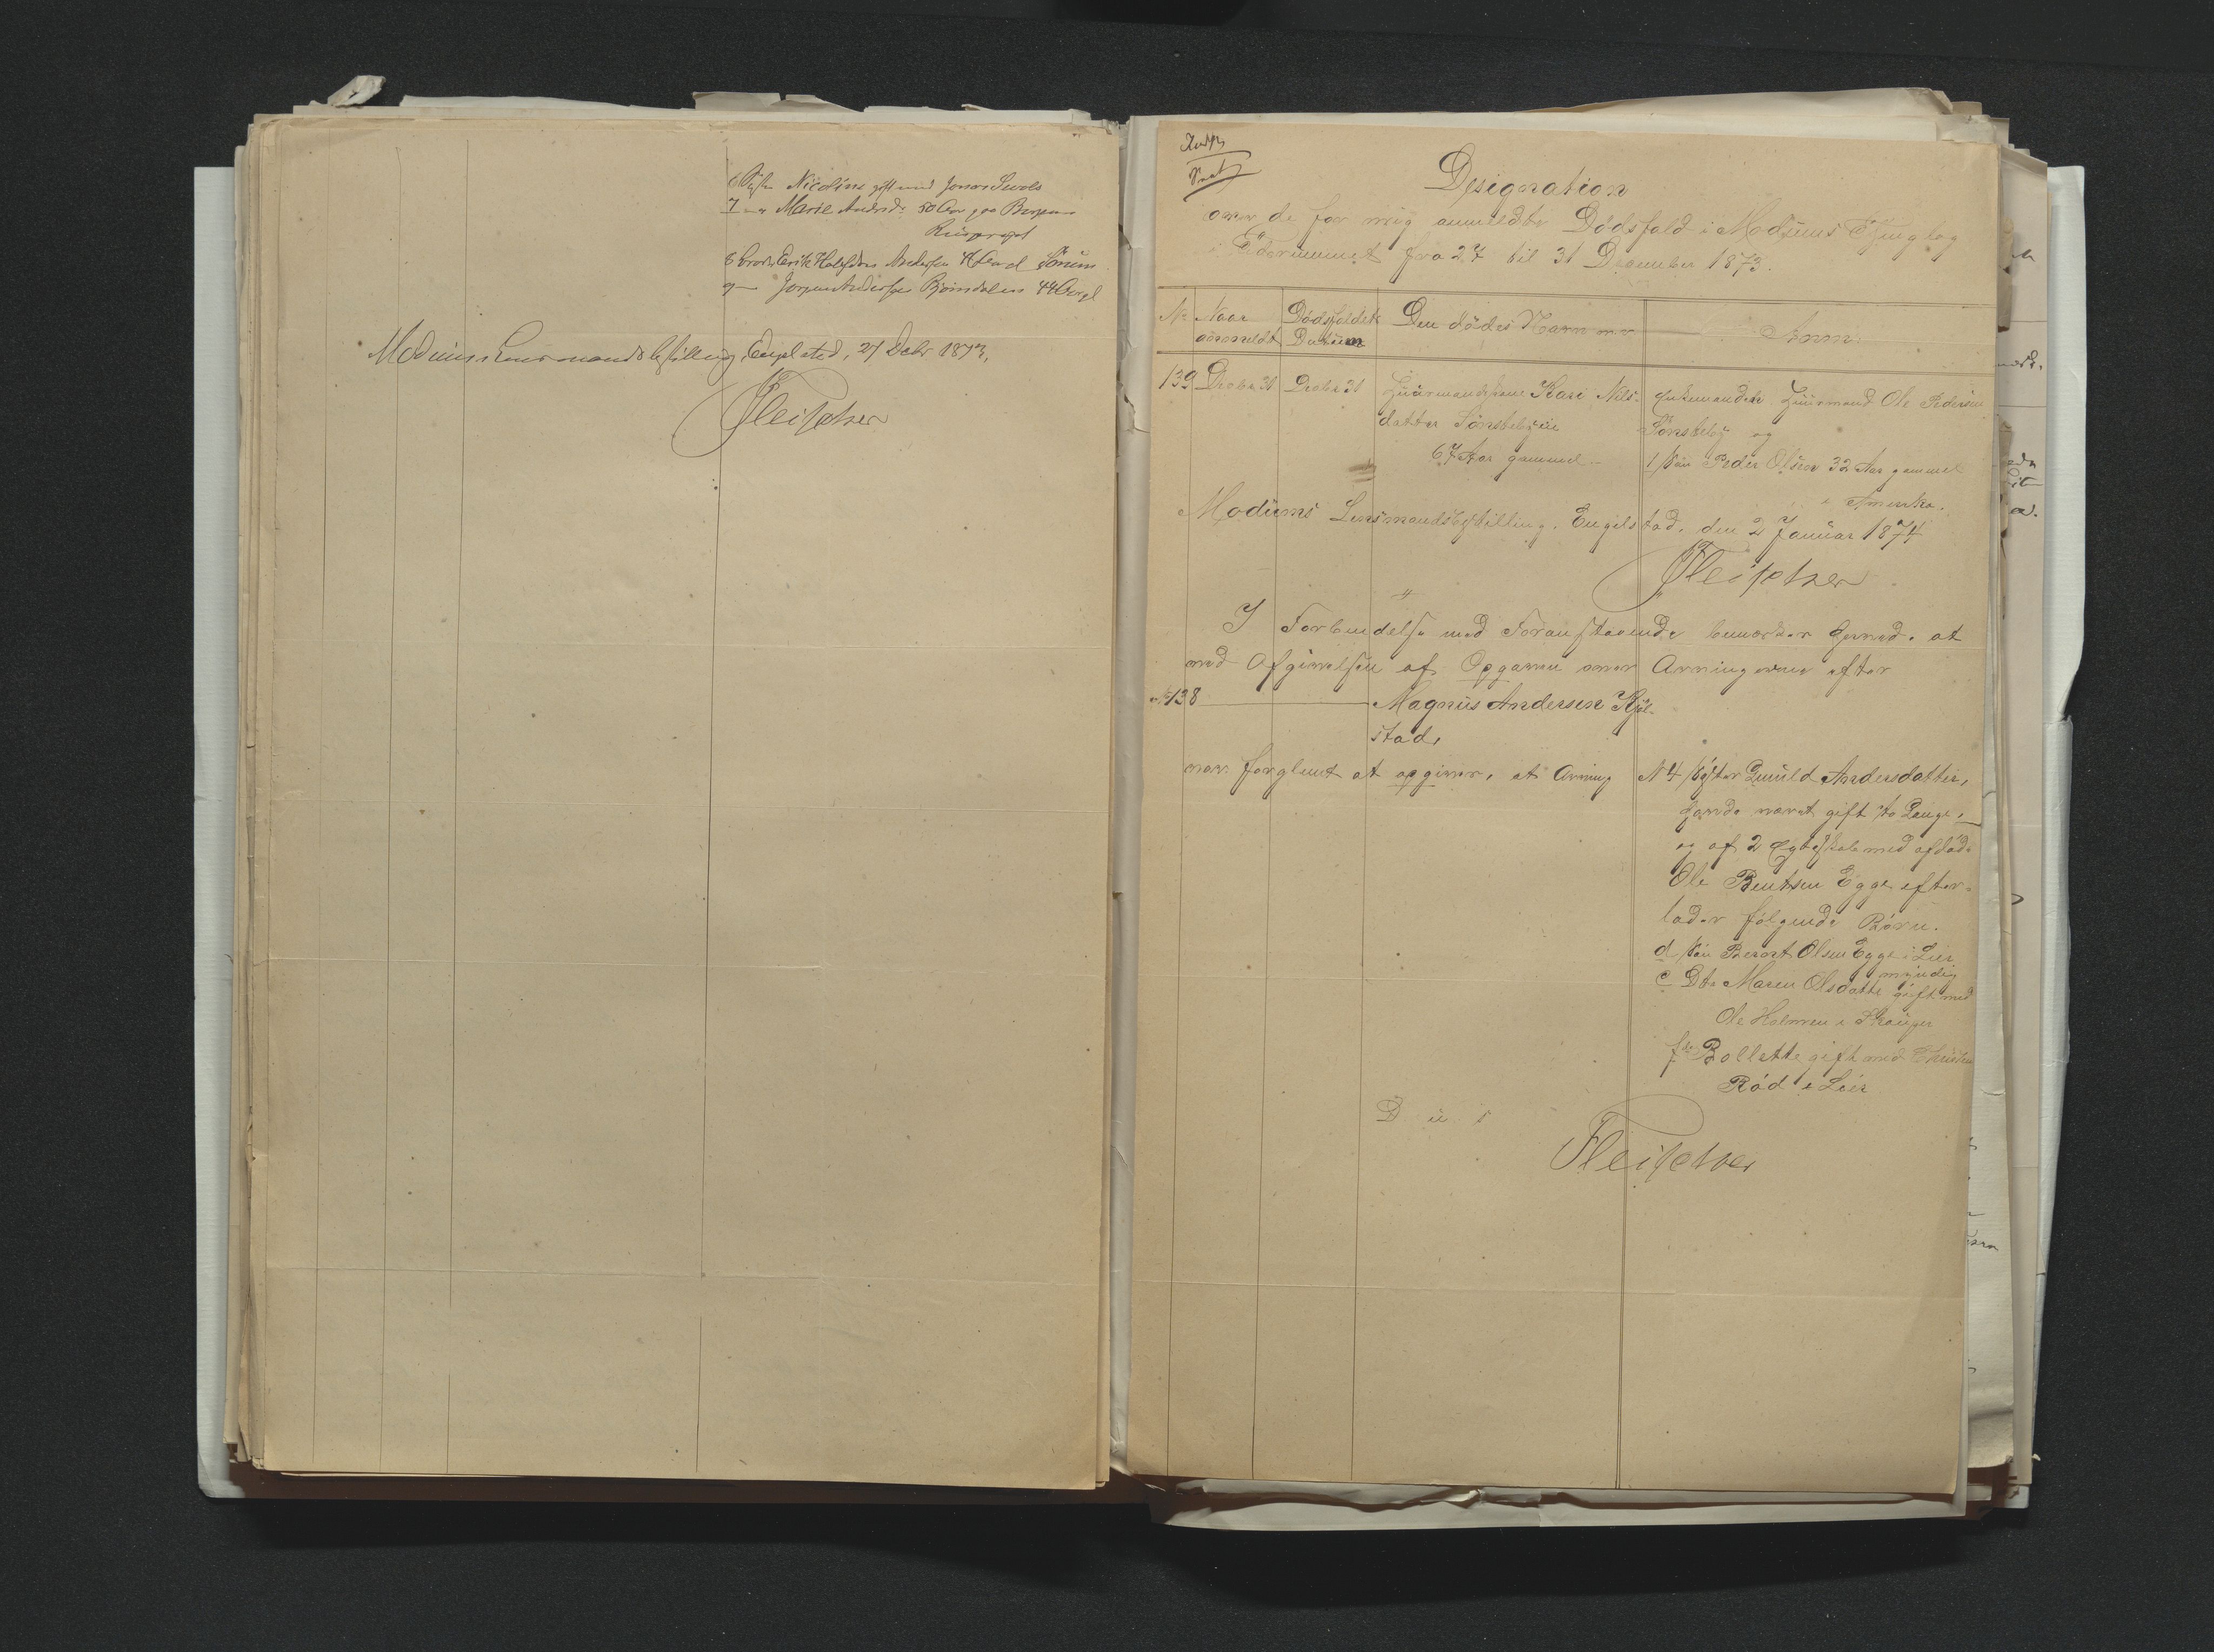 6 Søster Nicoline gift med Jonas
7 — Marie Andersd: 50 Aar paa
8 Broder Erik Andersen Aar gl
9 — Jørgen Andersen Bjørndalen 44 Aar gl
Modums Lensmandsbestilling, Engelstad, 27 Decbr 1873.
Fleischer
Designation
over de for mig anmeldte Dødsfald i Modums Thinglag
i Tidsrummet fra 27 til 31 December 1873.
No Naar anmeldt Dødsfaldets Datum Den dødes Navn m.v. Anm.
139 Decbr 31 Decbr 31 Huusmandskone Kari Nils- Enkemanden Huusmand Ole Pedersen
datter Sønstebyeie Sønsteby og
67 Aar gammel. 1/ Søn Peder Olsen 32 Aar gammel
i Amerika.
Modums Lensmandsbestilling, Engelstad, den 2 Januar 1874
Fleischer
I Forbindelse med Foranstaaende bemærkes herved, at
ved Afgivelsen af Opgaven over Arvingerne efter
No 138 Magnus Andersen Kjøl-
stad,
var forglemt at opgives, at Arving N 4 Søster Gunild Andersdatter,
havde været gift to Gange,
og af 2 Ægteskab med afdøde
Ole Bentsen Egge efter-
lader følgende Børn.
d Søn Berent Olsen Egge i Lier
myndig
e Dtr Maren Olsdatter gift med
Ole Holmen i
f do Bollette gift med
Rød i Lier
D u s
Fleischer